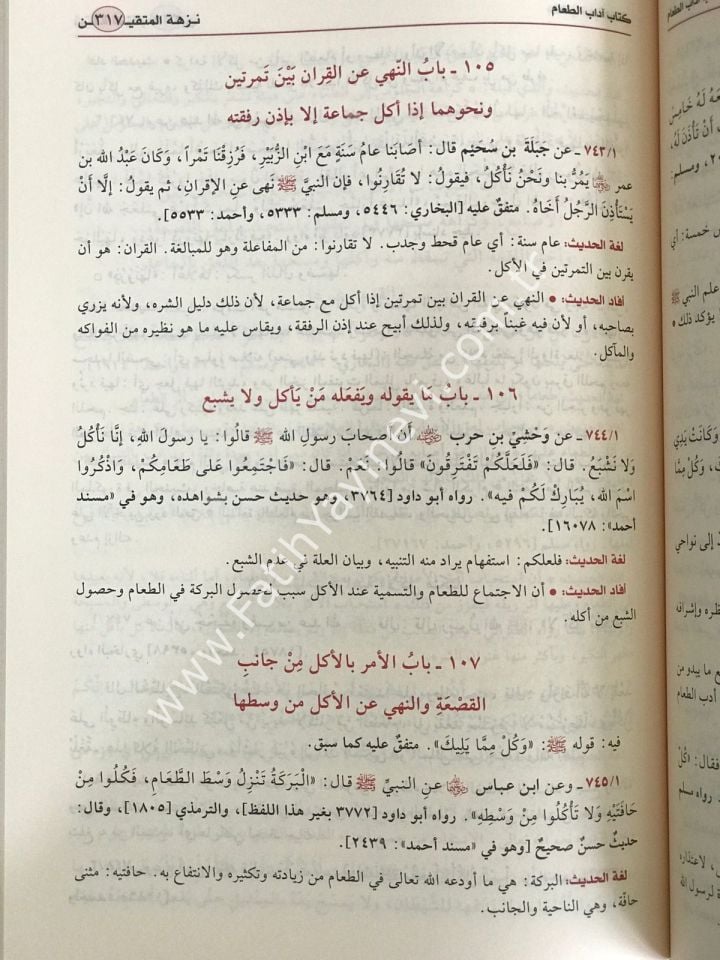 كتاب آداب الطعام
٣١٧
نـزهـة المتقيـن
١٠٥ ـ بابُ النّهي عن القِران بَيْنَ تَمرتين
ونحوهما إذا أكل جماعة إلا بإذن رفقته
٧٤٣/١ ـ عن جَبَلَة بن سُحَيْم قال: أصَابَنا عامُ سَنَةٍ مَعَ ابْنِ الزُّبَيْرِ، فَرُزِقْنا تَمْراً، وَكَانَ عَبْدُ الله بن
عمر ﵄ يَمُرُّ بنا ونَحْنُ نَأْكُلُ، فيقولُ: لا تُقَارِنُوا، فإن النبيَّ ﷺ نَهى عنِ الإقرانِ، ثم يقولُ: إلَّا أَنْ
يَسْتَأْذِنَ الرَّجُلُ أَخَاهُ. متفقٌ عليه [البخاري: ٥٤٤٦، ومسلم: ٥٣٣٣، وأحمد: ٥٥٣٣].
لغة الحديث: عام سنة: أي عام قحط وجدب. لا تقارنوا: من المفاعلة وهو للمبالغة. القران: هو أن
يقرن بين التمرتين في الأكل.
أفاد الحديث: • النهي عن القران بين تمرتين إذا أكل مع جماعة، لأن ذلك دليل الشره، ولأنه يزري
بصاحبه، أو لأن فيه غبناً برفقته، ولذلك أبيح عند إذن الرفقة، ويقاس عليه ما هو نظيره من الفواكه
والمآكل.
١٠٦ ـ بابُ مَا يقوله ويَفعَله مَنْ يَأكل ولا يشبع
٧٤٤/١ ـ عن وَحْشيّ بن حرب ﵁ أن أصحابَ رسولِ الله ﷺ قالُوا: يا رسولَ اللهِ، إنَّا نَأْكُلُ
وَلا نَشْبَعُ. قال: «فَلَعَلَّكُمْ تَفْتَرِقُونَ» قالُوا: نَعَمْ. قال: «فَاجْتَمِعُوا عَلى طَعَامِكُمْ، وَاذْكُرُوا
اسْمَ الله، يُبَارَكْ لَكُمْ فيه». رواه أبو داود [٣٧٦٤، وهو حديث حسن بشواهده، وهو في «مسند
أحمد»: ١٦٠٧٨].
لغة الحديث: فلعلكم: استفهام يراد منه التنبيه، وبيان العلة في عدم الشبع.
أفاد الحديث: • أن الاجتماع للطعام والتسمية عند الأكل سبب لحصول البركة في الطعام وحصول
الشبع من أكله.
١٠٧ ـ بابُ الأمر بالأكل مِنْ جانبِ
القصْعَةِ والنهي عن الأكل من وسطها
فيه: قوله ﷺ: «وَكُلْ مِمَّا يَلِيكَ». متفقٌ عليه كما سبق.
٧٤٥/١ ـ وعن ابن عباس ﵄ عن النبيِّ ﷺ قال: «الْبَرَكَةُ تَنْزِلُ وَسَطَ الطَّعَامِ، فَكُلُوا مِنْ
حَافَتَيْهِ وَلا تَأْكُلُوا مِنْ وَسْطِهِ». رواه أبو داود [٣٧٧٢ بغير هذا اللفظ]، والترمذي [١٨٠٥]، وقال:
حديثٌ حسنٌ صحيحٌ [وهو في «مسند أحمد»: ٢٤٣٩].
لغة الحديث: البركة: هي ما أودعه الله تعالى في الطعام من زيادته وتكثيره والانتفاع به. حافتيه: مثنى
حافّة، وهي الناحية والجانب.
www.FatihYayinevi.com.tr